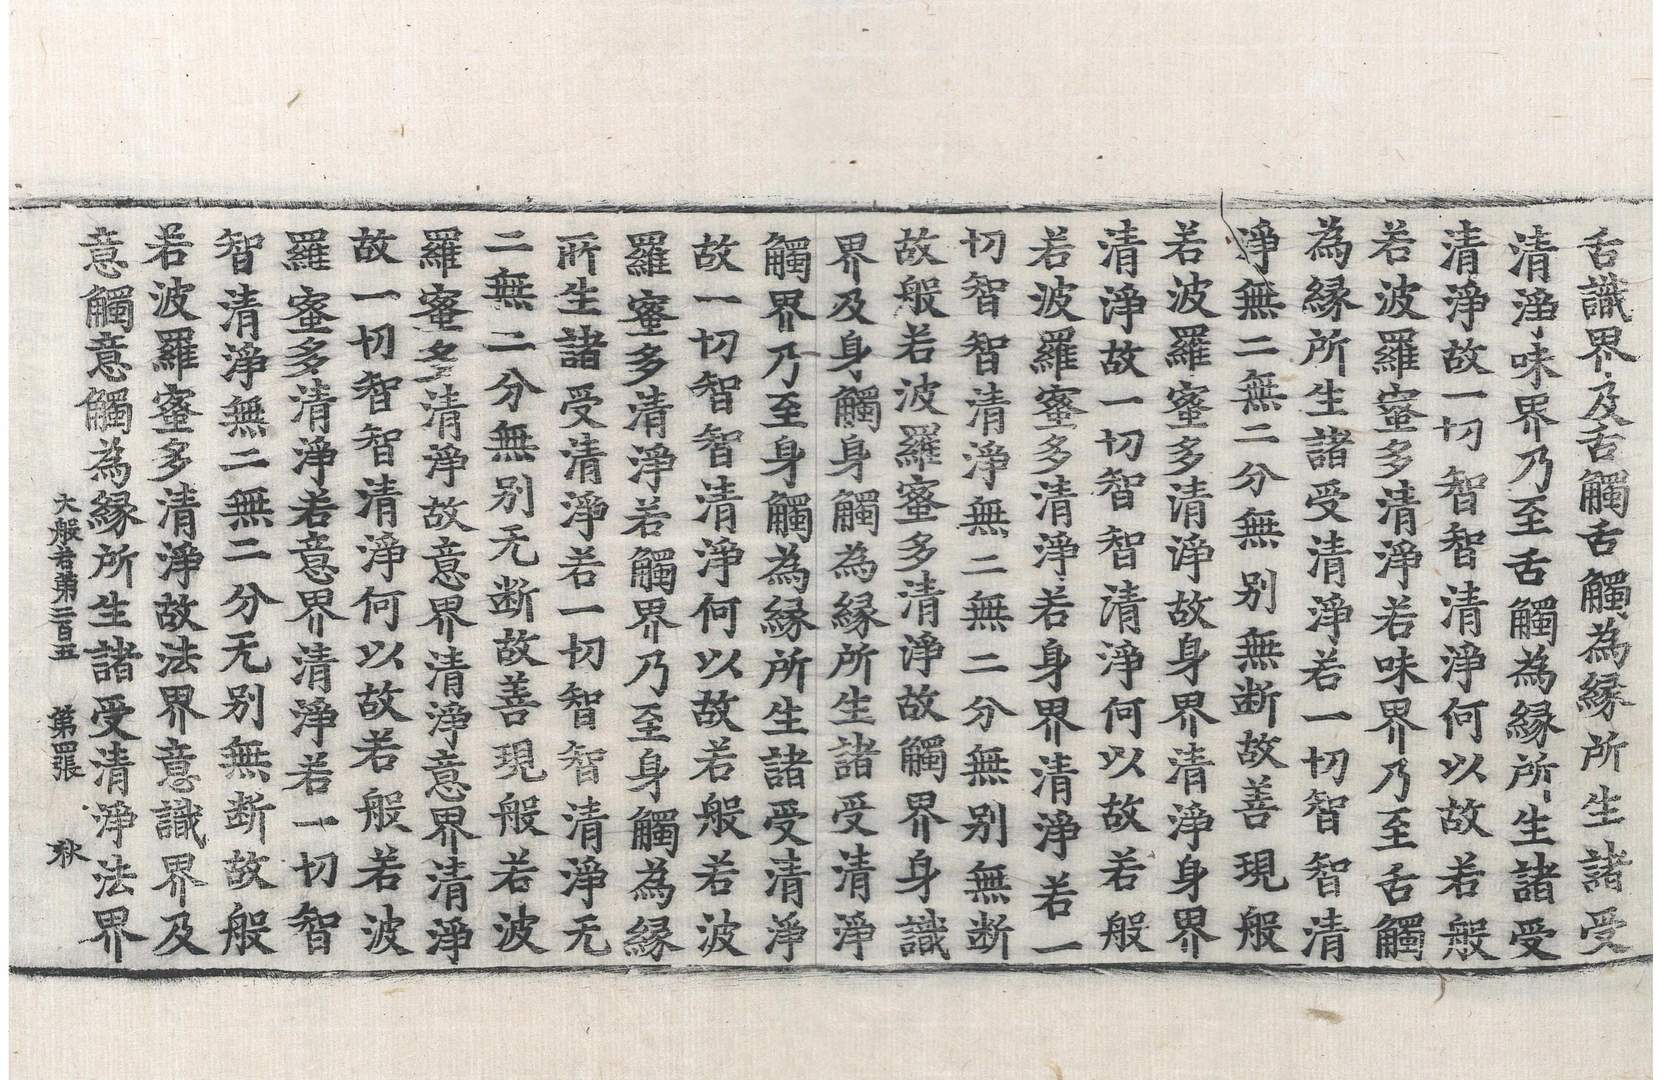 舌識界及舌觸舌觸為縁所生諸受
清淨味界乃至舌觸為縁所生諸受
清淨故一切智智清淨何以故若般
若波羅蜜多清淨若味界乃至舌觸
為縁所生諸受清淨若一切智智清
淨無二無二分無別無断故善現般
若波羅蜜多清淨故身界清淨身界
清淨故一切智智清淨何以故若般
若波羅蜜多清淨若身界清淨若一
切智智清淨無二無二分無別無断
故般若波羅蜜多清淨故觸界身識
界及身觸身觸為縁所生諸受清淨
觸界乃至身觸為縁所生諸受清淨
故一切智智清淨何以故若般若波
羅蜜多清淨若觸界乃至身觸為縁
所生諸受清淨若一切智智清淨无
二無二分無別无断故善現般若波
羅蜜多清淨故意界清淨意界清淨
故一切智智清淨何以故若般若波
羅蜜多清淨若意界清淨若一切智
智清淨無二無二分无別無断故般
若波羅蜜多清淨故法界意識界及
意觸意觸為縁所生諸受清淨法界
大般若第二百五 第四張 秋